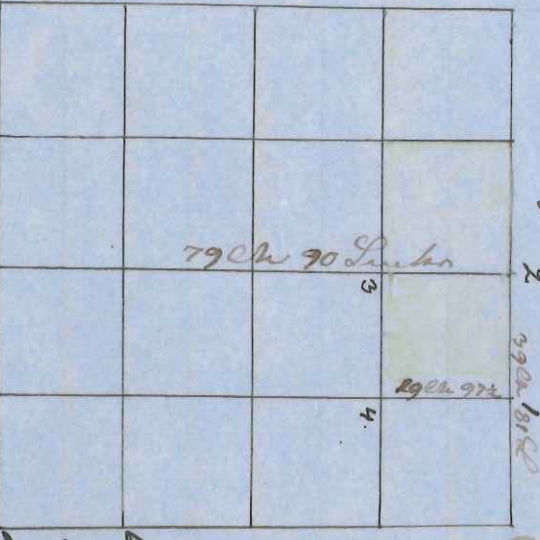 79 Ch 90 Links
3
2
19 Ch 97½
4.
39 Ch